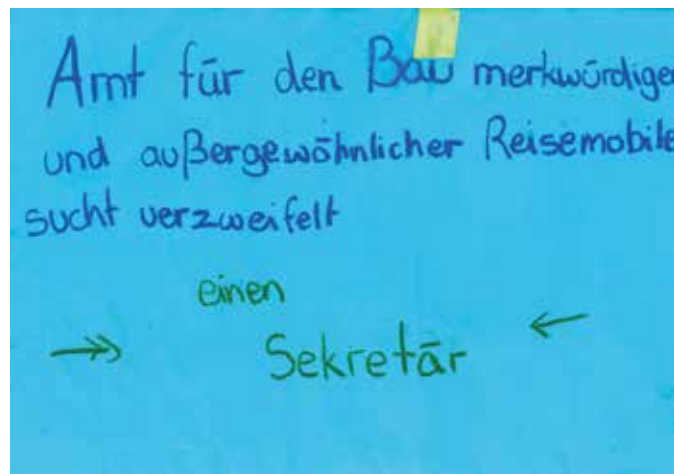 Amt für den Bau merkwürdiger
und außergewöhnlicher Reisemobile
sucht verzweifelt
einen
Sekretär